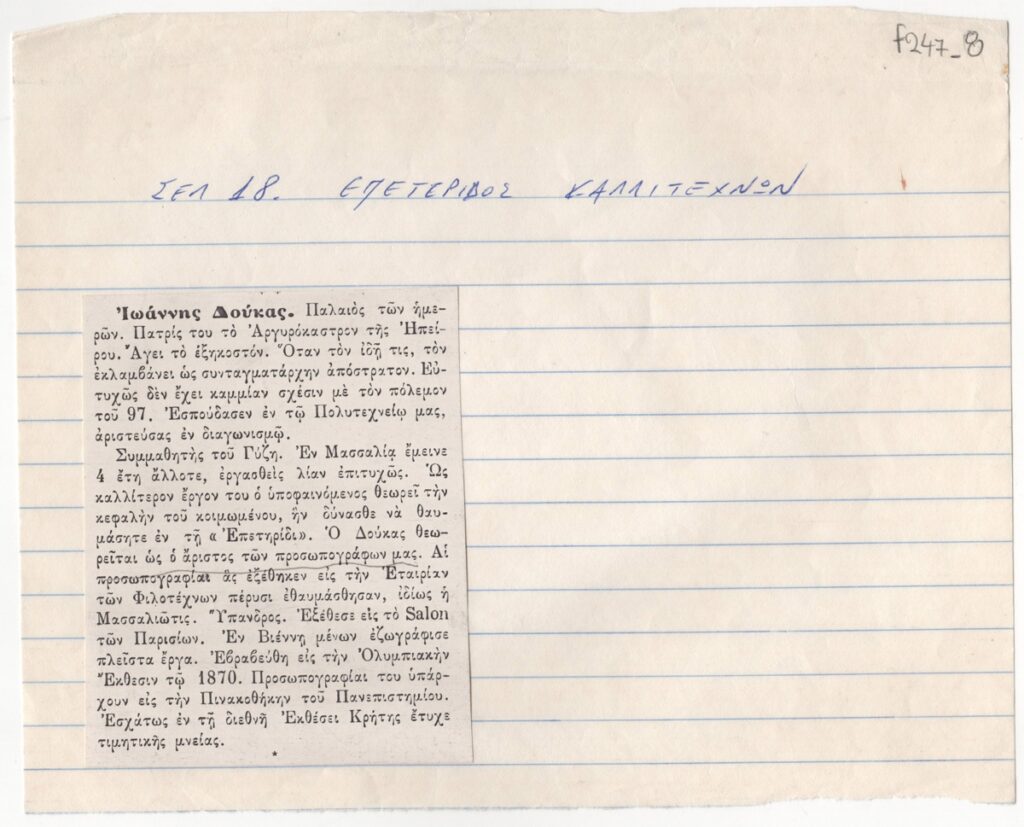 f247_8
ΣΕΛ 18. ΕΠΕΤΕΡΙΔΟΣ ΚΑΛΛΙΤΕΧΝΩΝ
Ἰωάννης Δούκας. Παλαιὸς τῶν ἡμε-
ρῶν. Πατρίς του τὸ Ἀργυρόκαστρον τῆς Ἠπεί-
ρου. Ἄγει τὸ ἑξηκοστόν. Ὅταν τὸν ἰδῇ τις, τὸν
ἐκλαμβάνει ὡς συνταγματάρχην ἀπόστρατον. Εὐ-
τυχῶς δὲν ἔχει καμμίαν σχέσιν μὲ τὸν πόλεμον
τοῦ 97. Ἐσπούδασεν ἐν τῷ Πολυτεχνείῳ μας,
ἀριστεύσας ἐν διαγωνισμῷ.
Συμμαθητὴς τοῦ Γύζη. Ἐν Μασσαλίᾳ ἔμεινε
4 ἔτη ἄλλοτε, ἐργασθεὶς λίαν ἐπιτυχῶς. Ὡς
καλλίτερον ἔργον του ὁ ὑποφαινόμενος θεωρεῖ τὴν
κεφαλὴν τοῦ κοιμωμένου, ἣν δύνασθε νὰ θαυ-
μάσητε ἐν τῇ « Ἐπετηρίδι». Ὁ Δούκας θεω-
ρεῖται ὡς ὁ ἄριστος τῶν προσωπογράφων μας. Αἱ
προσωπογραφίαι ἃς ἐξέθηκεν εἰς τὴν Ἑταιρίαν
τῶν Φιλοτέχνων πέρυσι ἐθαυμάσθησαν, ἰδίως ἡ
Μασσαλιῶτις. Ὕπανδρος. Ἐξέθεσε εἰς τὸ Salon
τῶν Παρισίων. Ἐν Βιέννῃ μένων ἐζωγράφισε
πλεῖστα ἔργα. Ἐβραβεύθη εἰς τὴν Ὀλυμπιακὴν
Ἔκθεσιν τῷ 1870. Προσωπογραφίαι του ὑπάρ-
χουν εἰς τὴν Πινακοθήκην τοῦ Πανεπιστημίου.
Ἐσχάτως ἐν τῇ διεθνῆ Ἐκθέσει Κρήτης ἔτυχε
τιμητικῆς μνείας.